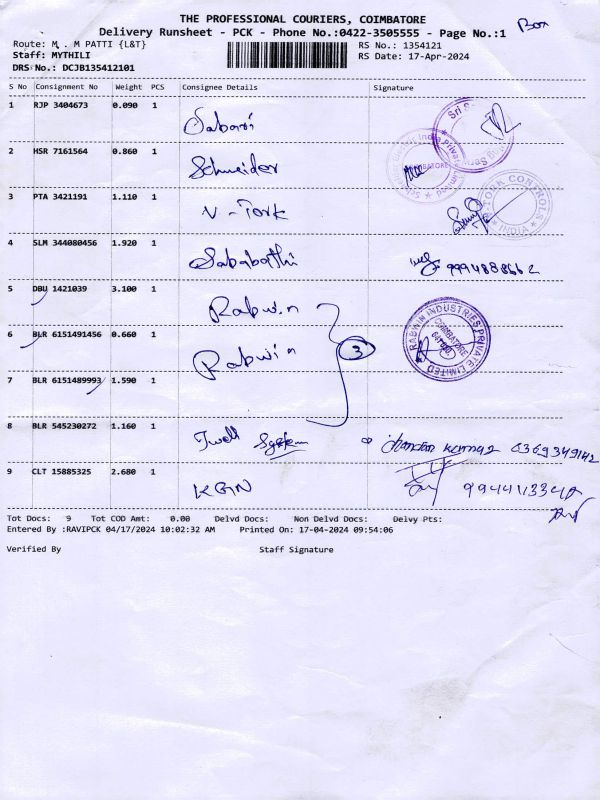 THE PROFESSIONAL COURIERS, COIMBATORE
Delivery Runsheet - PCK - Phone No.:0422-3505555 - Page No.:1
Box
Route: M . M PATTI {L&T}
RS No.: 1354121
Staff: MYTHILI
RS Date: 17-Apr-2024
DRS No.: DCJB135412101
S No Consignment No Weight PCS Consignee Details Signature
1 RJP 3404673 0.090 1 Sabari
2 HSR 7161564 0.860 1 Schneider
3 PTA 3421191 1.110 1 V-Tork
4 SLM 344080456 1.920 1 Sababathi 9994888662
5 DBU 1421039 3.100 1 Rabwin
6 BLR 6151491456 0.660 1 Rabwin 3
RABWIN INDUSTRIES PRIVATE LIMITED
COIMBATORE
7 BLR 6151489993 1.590 1
8 BLR 545230272 1.160 1 System 6369349142
9 CLT 15885325 2.680 1 KGN
Tot Docs: 9 Tot COD Amt: 0.00 Delvd Docs: Non Delvd Docs: Delvy Pts:
Entered By :RAVIPCK 04/17/2024 10:02:32 AM Printed On: 17-04-2024 09:54:06
Verified By Staff Signature